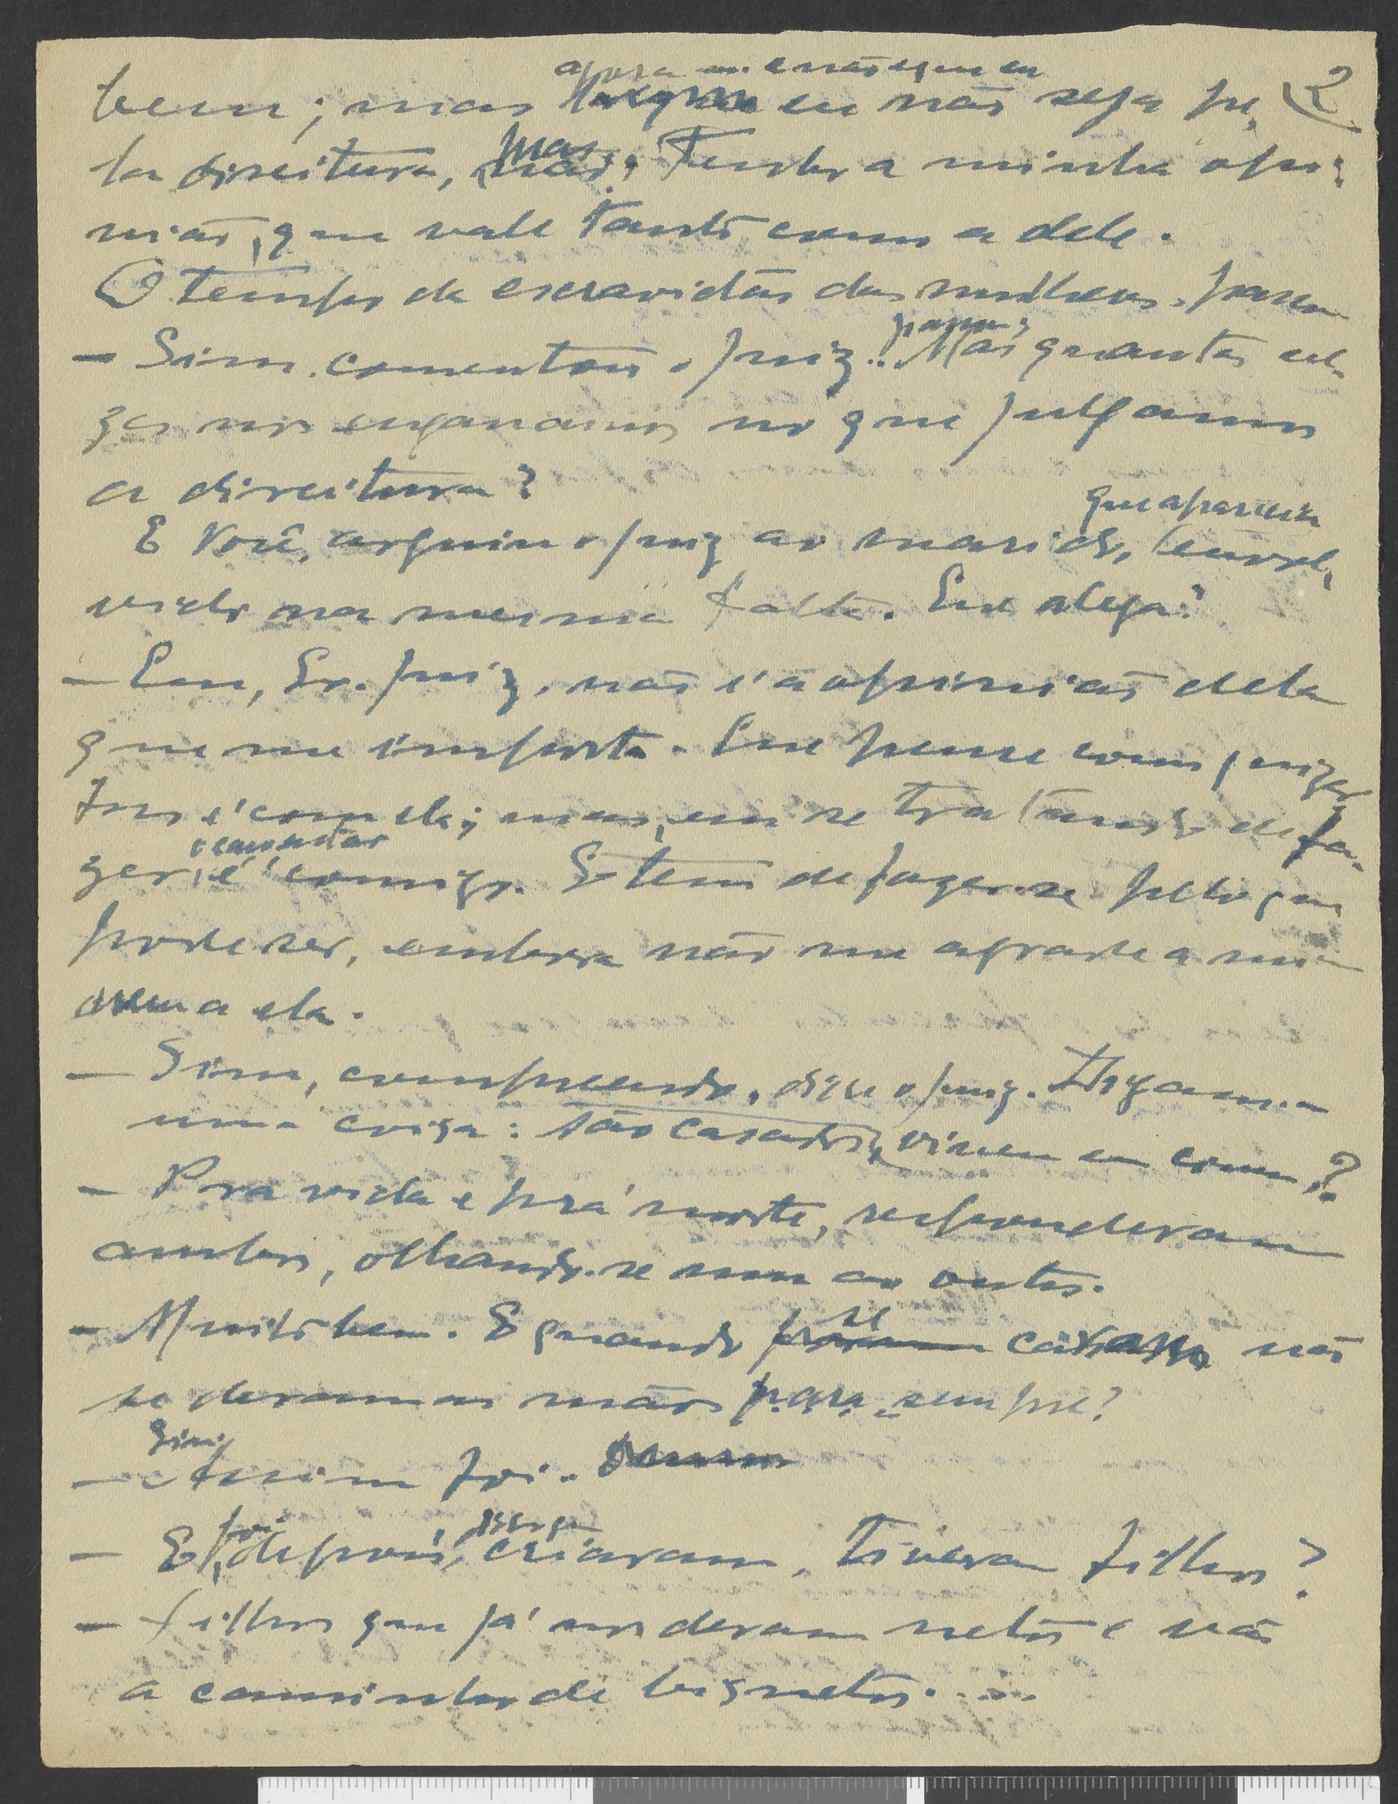 2
agora ... e não é que eu
bem; mas eu não seja pe-
la direitura, mas. Tenho a minha opi-
nião, que vale tanto como a dele.
O tempo da escravidão das mulheres passou
passou;
— Sim. comentou o juiz.. Mas quantas ve-
zes nos enganamos no que julgamos
a direitura?
que aparecia
E Você, arguiu o juiz ao marido, envol-
vido na mesma falta. Que alega?
— Eu, Sr. Juiz, não é a opinião dela
que me importa. Que pense como quizer
Isso é com ela; mas, em se tratando de fa-
o cantar
zer, é comigo. E tem de fazer-se pelo que
pode ser, embora não me agrade a mim
nem a ela.
— Sim, compreendo, disse o juiz. Digam-me
uma coisa: são casados, vivem em comum?
— Pra vida e prá morte, responderam
ambos, olhando-se um ao outro.
— Muito bem. E quando se casaram não
se deram as mãos para sempre?
Sim
— Assim foi.
— E, depois, criaram, tiveram filhos?
— Filhos que já nos deram netos e vão
a caminho de bisnetos....